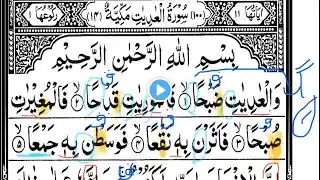 اٰیَاتُهَا ۱۱ (۱۰۰) سُوْرَةُ الْعٰدِیٰتِ مَکِّیَّةٌ (۱۴) رُکُوْعُهَا ۱
بِسْمِ اللّٰهِ الرَّحْمٰنِ الرَّحِیْمِ
وَالْعٰدِیٰتِ ضَبْحًا ۱ فَالْمُوْرِیٰتِ قَدْحًا ۲ فَالْمُغِیْرٰتِ
صُبْحًا ۳ فَاَثَرْنَ بِهٖ نَقْعًا ۴ فَوَسَطْنَ بِهٖ جَمْعًا ۵